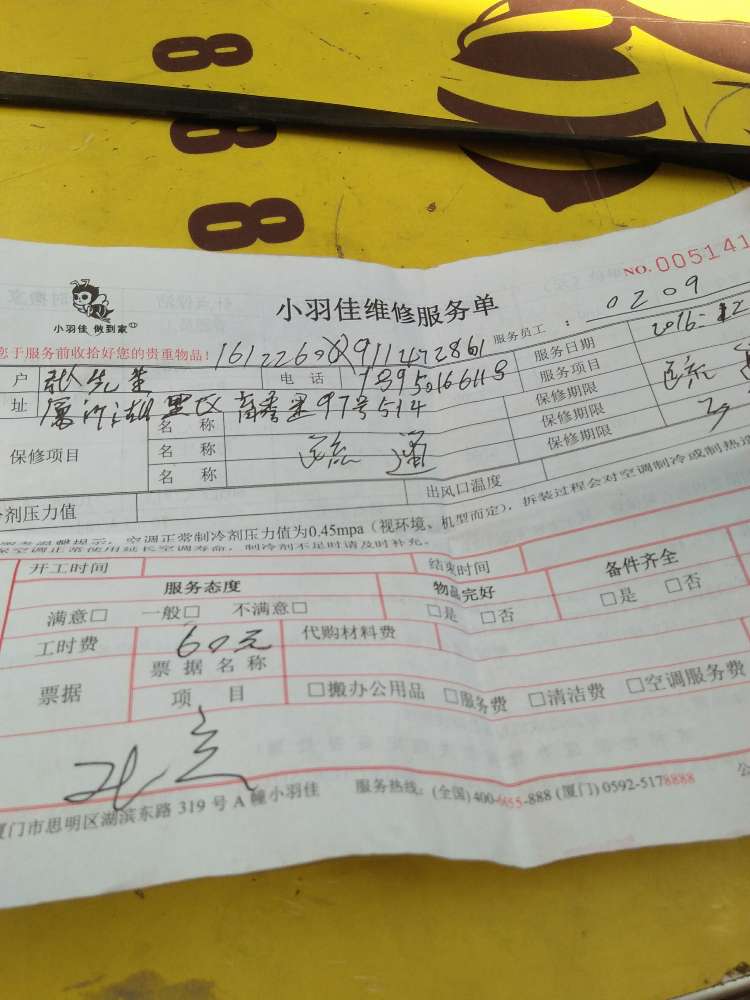 8
8
8
NO.005141
小羽佳 做到家
小羽佳维修服务单
服务员工：0209
您于服务前收拾好您的贵重物品！
服务日期 2016-12
户 先生 电话 服务项目 疏通
址 厦门湖里区 97号514 保修期限
保修项目 名称 疏通 保修期限
名称 保修期限
名称
剂压力值 出风口温度
空调正常制冷剂压力值为0.45mpa（视环境、机型而定），拆装过程会对空调制冷或制热造
空调正常使用延长空调寿命，制冷剂不足时请及时补充。
开工时间 结束时间
服务态度 物品完好 备件齐全
满意□ 一般□ 不满意□ □是 □否 □是 □否
工时费 60元 代购材料费
票据 票据名称
项目 □搬办公用品 □服务费 □清洁费 □空调服务费
厦门市思明区湖滨东路 319 号 A 幢小羽佳 服务热线：(全国)400-655-888 (厦门)0592-5178888